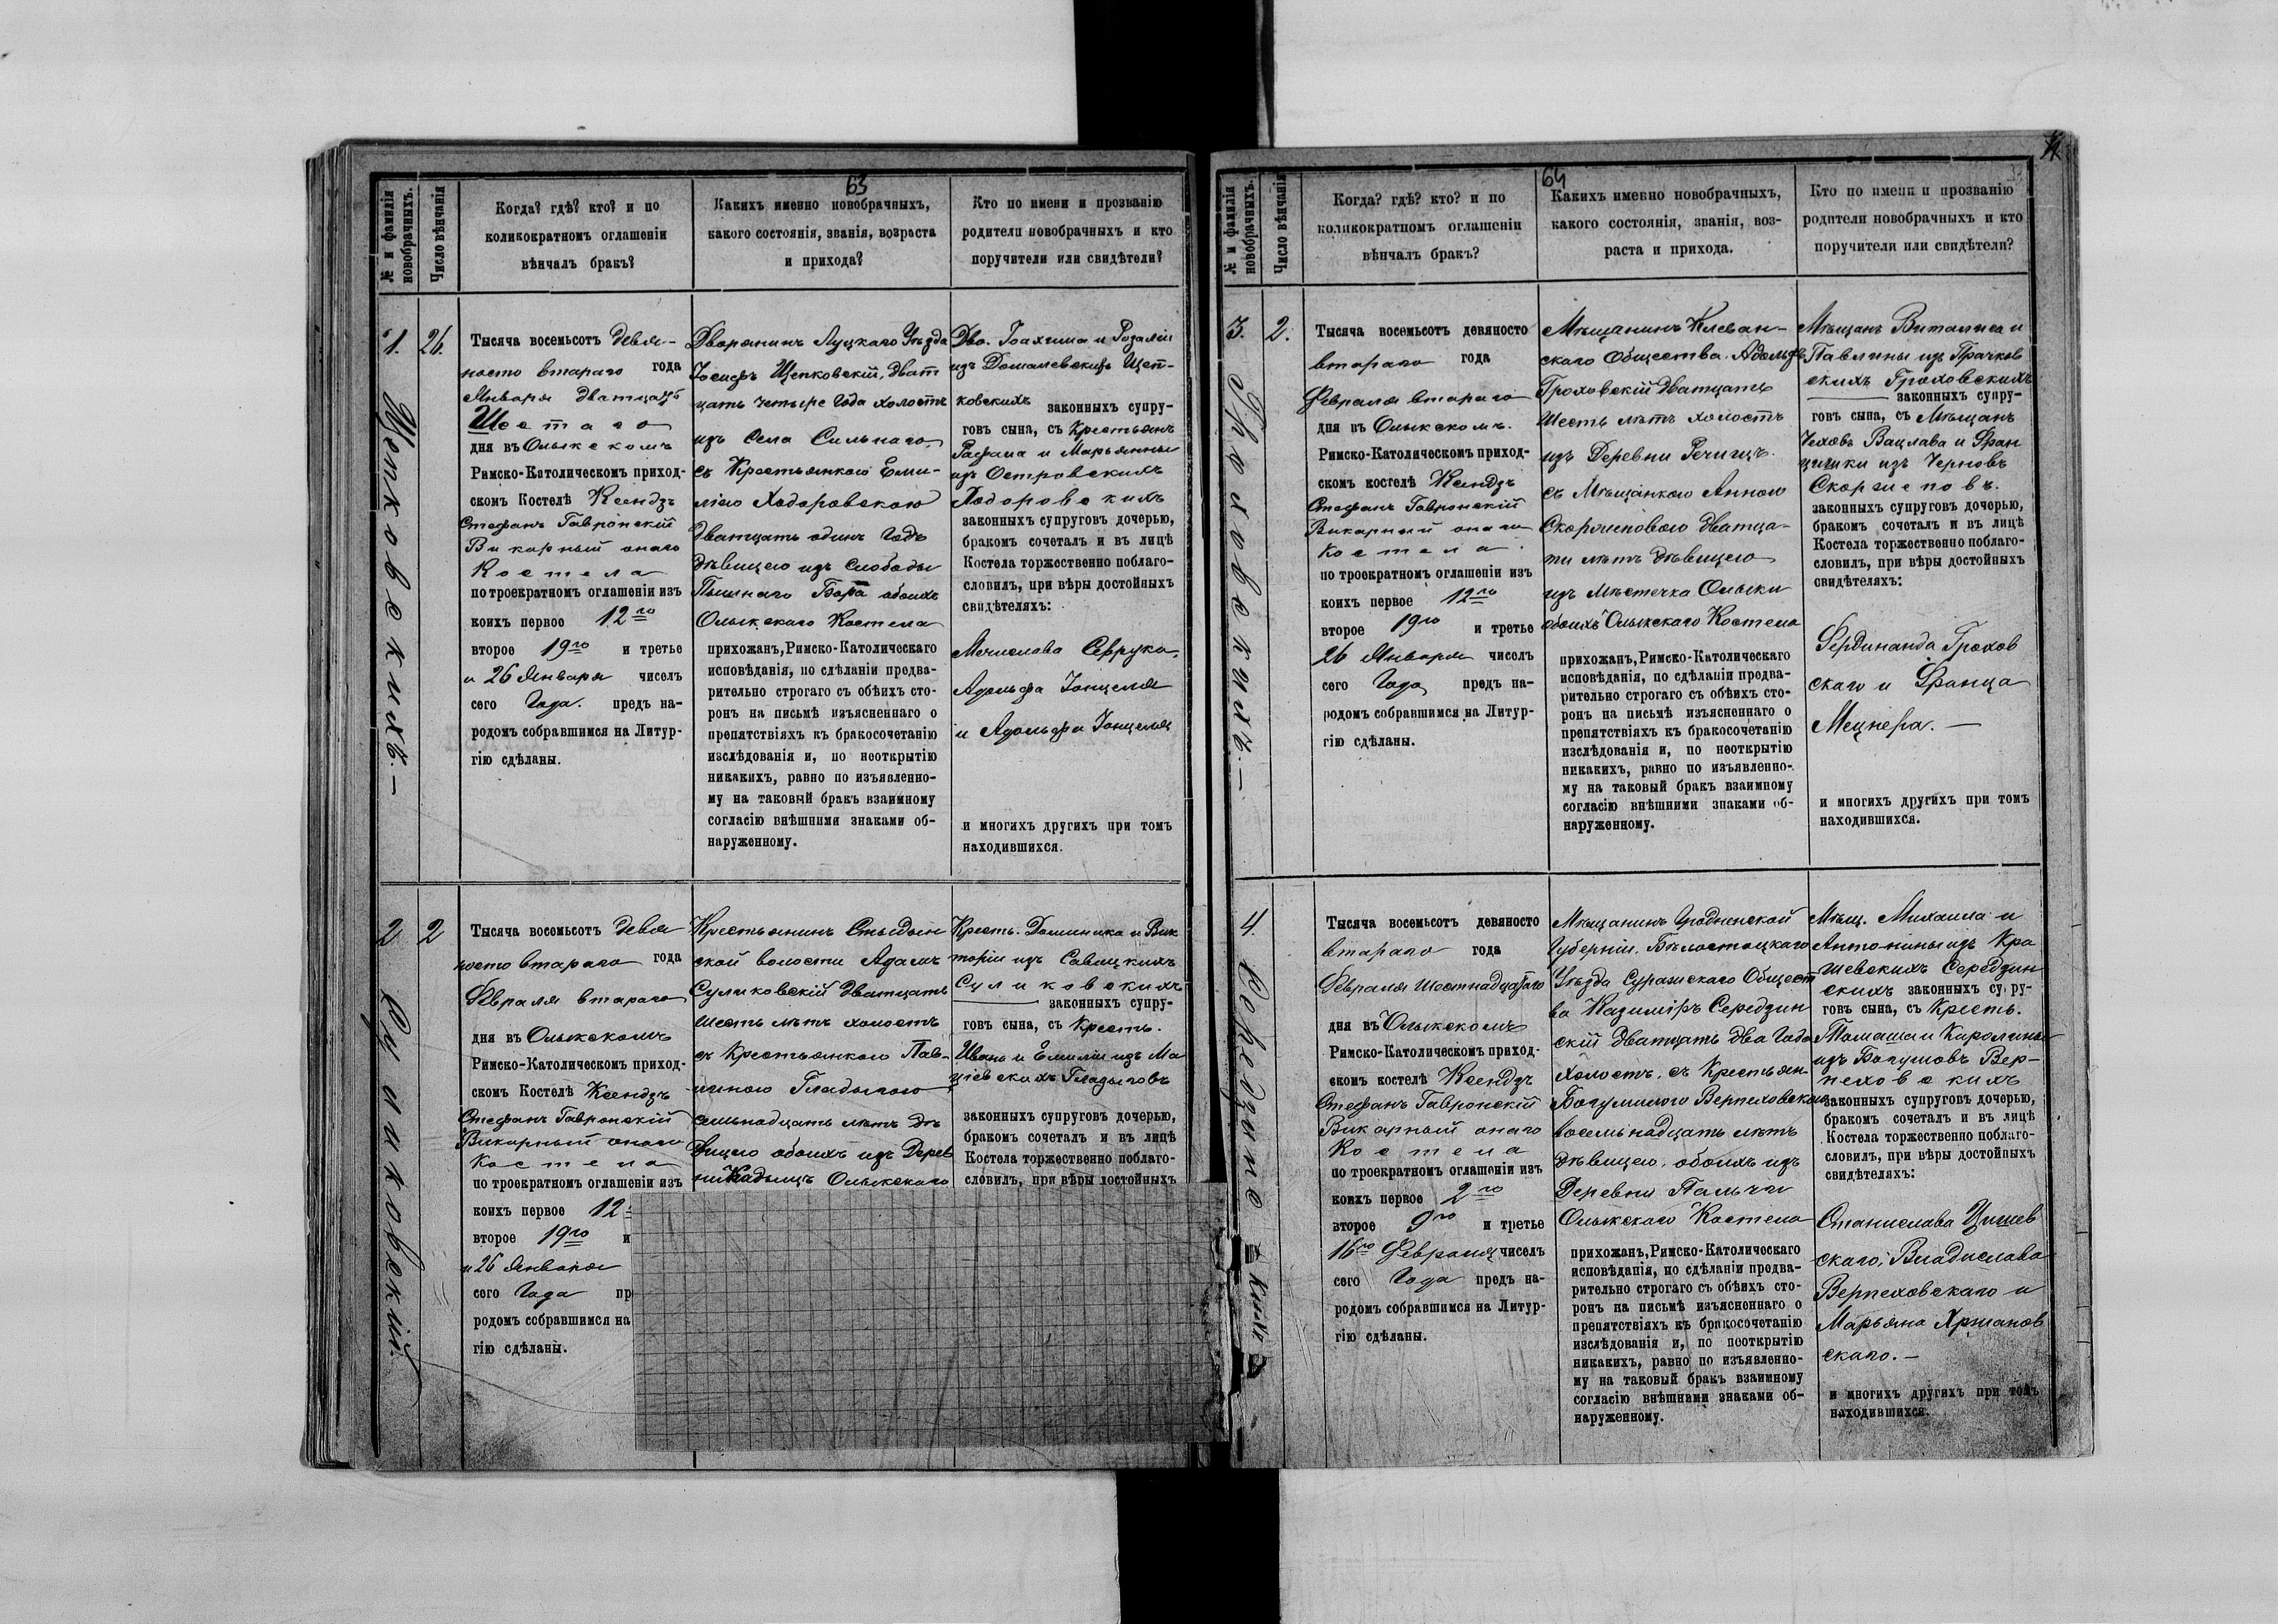 63
№ и фамилія
новобрачныхъ.
Число вѣнчанія
Когда? гдѣ? кто? и по
коликократномъ оглашеніи
вѣнчалъ бракъ?
Какихъ именно новобрачныхъ,
какого состоянія, званія, возраста
и прихода?
Кто по имени и прозванію
родители новобрачныхъ и кто
поручители или свидѣтели?
1.
Щепковскихъ.—
26.
Тысяча восемьсотъ девя-
носто втораго года
Января двадцать
Шестаго
дня въ Олыкскомъ
Римско-Католическомъ приход-
скомъ Костелѣ Ксендзъ
Стефанъ Гавронскій
Викарный онаго
Костела
по троекратномъ оглашеніи изъ
коихъ первое 12го
второе 19го и третье
и 26 Января чиселъ
сего Года. предъ на-
родомъ собравшимся на Литур-
гію сдѣланы.
Дворянинъ Луцкаго Уѣзда
Іосифъ Щепковскій, дват
цать четыре года холостъ
изъ Села Сильнаго
съ Крестьянкою Еми-
ліею Ходоровскою
Дватцать одинъ Годъ
дѣвицею изъ Слободы
Пышнаго Бора обоихъ
Олыкскаго Костела
прихожанъ, Римско-Католическаго
исповѣданія, по сдѣланіи предва-
рительно строгаго съ обѣихъ сто-
ронъ на письмѣ изъясненнаго о
препятствіяхъ къ бракосочетанію
изслѣдованія и, по неоткрытію
никакихъ, равно по изъявленно-
му на таковый бракъ взаимному
согласію внѣшними знаками об-
наруженному.
Дво. Іоахима и Розаліи
изъ Домалевскихъ Щеп-
ковскихъ законныхъ супру-
говъ сына, съ Крестьянъ
Рафала и Марьянны
изъ Островскихъ
Ходоровскихъ
законныхъ супруговъ дочерью,
бракомъ сочеталъ и въ лицѣ
Костела торжественно поблаго-
словилъ, при вѣры достойныхъ
свидѣтеляхъ:
Мечислава Сефрука,
Адольфа Іонцеля
и Адольфа Іонцеля
и многихъ другихъ при томъ
находившихся.
2
Суликовскій.
2
Тысяча восемьсотъ девя
носто втораго года
Февраля втораго
дня въ Олыкскомъ
Римско-Католическомъ приход-
скомъ Костелѣ Ксендзъ
Стефанъ Гавронскій
Викарный онаго
Костела
по троекратномъ оглашеніи изъ
коихъ первое 12
второе 19го и
и 26 Января
сего Года пр
родомъ собравшимся на
гію сдѣланы.
Крестьянинъ Стыдын
ской волости Адамъ
Суликовскій Дватцать
шесть лѣтъ холостъ
съ Крестьянкою Пав-
линою Гладыгою
семьнадцать лѣтъ дѣ
вицею обоихъ изъ Дерев
ни Кадыщъ Олыкскаго
Крестъ. Доминика и Вик
торіи изъ Савицкихъ
Суликовскихъ
законныхъ супру-
говъ сына, съ Крестъ.
Ивана и Емиліи изъ Ма
ціевскихъ Гладыговъ
законныхъ супруговъ дочерью,
бракомъ сочеталъ и въ лицѣ
Костела торжественно поблаго-
словилъ, при вѣры достойныхъ
64
№ и фамилія
новобрачныхъ.
Число вѣнчанія
Когда? гдѣ? кто? и по
коликократномъ оглашеніи
вѣнчалъ бракъ?
Какихъ именно новобрачныхъ,
какого состоянія, званія, воз-
раста и прихода.
Кто по имени и прозванію
родители новобрачныхъ и кто
поручители или свидѣтели?
3.
Гроховскихъ.—
2.
Тысяча восемьсотъ девяносто
втораго года
Февраля втораго
дня въ Олыкскомъ.
Римско-Католическомъ приход-
скомъ костелѣ Ксендзъ
Стефанъ Гавронскій
Викарный онаго
Костела.
по троекратномъ оглашеніи изъ
коихъ первое 12го
второе 19го и третье
26 Января чиселъ
сего Года предъ на-
родомъ собравшимся на Литур-
гію сдѣланы.
Мѣщанинъ Клеван-
скаго Общества Адольфъ
Гроховскій Дватцать
Шесть лѣтъ холостъ
изъ Деревни Речищъ.
съ Мѣщанкою Анною
Скоржеповою Дватца-
ти лѣтъ дѣвицею
изъ Мѣстечка Олыки
обоихъ Олыкскаго Костела
прихожанъ, Римско-Католическаго
исповѣданія, по сдѣланіи предва-
рительно строгаго съ обѣихъ сто-
ронъ на письмѣ изъясненнаго о
препятствіяхъ къ бракосочетанію
изслѣдованія и, по неоткрытію
никакихъ, равно по изъявленно-
му на таковый бракъ взаимному
согласію внѣшними знаками об-
наруженному.
Мѣщанъ Виталиса и
Павлины изъ Грачков
скихъ Гроховскихъ
законныхъ супру-
говъ сына, съ Мѣщанъ
Чеховъ Вацлава и Фран
цишки изъ Черновъ
Скоржеповъ.
законныхъ супруговъ дочерью,
бракомъ сочеталъ и въ лицѣ
Костела торжественно поблаго-
словилъ, при вѣры достойныхъ
свидѣтеляхъ:
Фердинанда Грохов
скаго и Франца
Мецнера.—
и многихъ другихъ при томъ
находившихся.
4.
Тысяча восемьсотъ девяносто
втораго года
Февраля Шестнадцатаго
дня въ Олыкскомъ
Римско-Католическомъ приход-
скомъ костелѣ Ксендзъ
Стефанъ Гавронскій
Викарный онаго
Костела
по троекратномъ оглашеніи изъ
коихъ первое 2го
второе 9го и третье
16го Февраля чиселъ
сего Года предъ на-
родомъ собравшимся на Литур-
гію сдѣланы.
Мѣщанинъ Гродненской
Губерніи. Бѣлостоцкаго
Уѣзда Суражскаго Общест
ва Казиміръ Середзин
скій Дватцать два Года
Холостъ. съ Крестьян
Богумилою Верпеховскою
восемьнадцать лѣтъ
дѣвицею. обоихъ изъ
Деревни Пальчи
Олыкскаго Костела
прихожанъ, Римско-Католическаго
исповѣданія, по сдѣланіи предва-
рительно строгаго съ обѣихъ сто-
ронъ на письмѣ изъясненнаго о
препятствіяхъ къ бракосочетанію
изслѣдованія и, по неоткрытію
никакихъ, равно по изъявленно-
му на таковый бракъ взаимному
согласію внѣшними знаками об-
наруженному.
Мѣщ. Михаила и
Антонины изъ Кра
шевскихъ Середзин
скихъ законныхъ супру-
говъ сына, съ Крестъ.
Томаша и Каролины
изъ Богушовъ Вер-
пеховскихъ
законныхъ супруговъ дочерью,
бракомъ сочеталъ и въ лицѣ
Костела торжественно поблаго-
словилъ, при вѣры достойныхъ
свидѣтеляхъ:
Станислава Цишев
скаго, Владислава
Верпеховскаго и
Марьяна Хржанов
скаго.—
и многихъ другихъ при томъ
находившихся.